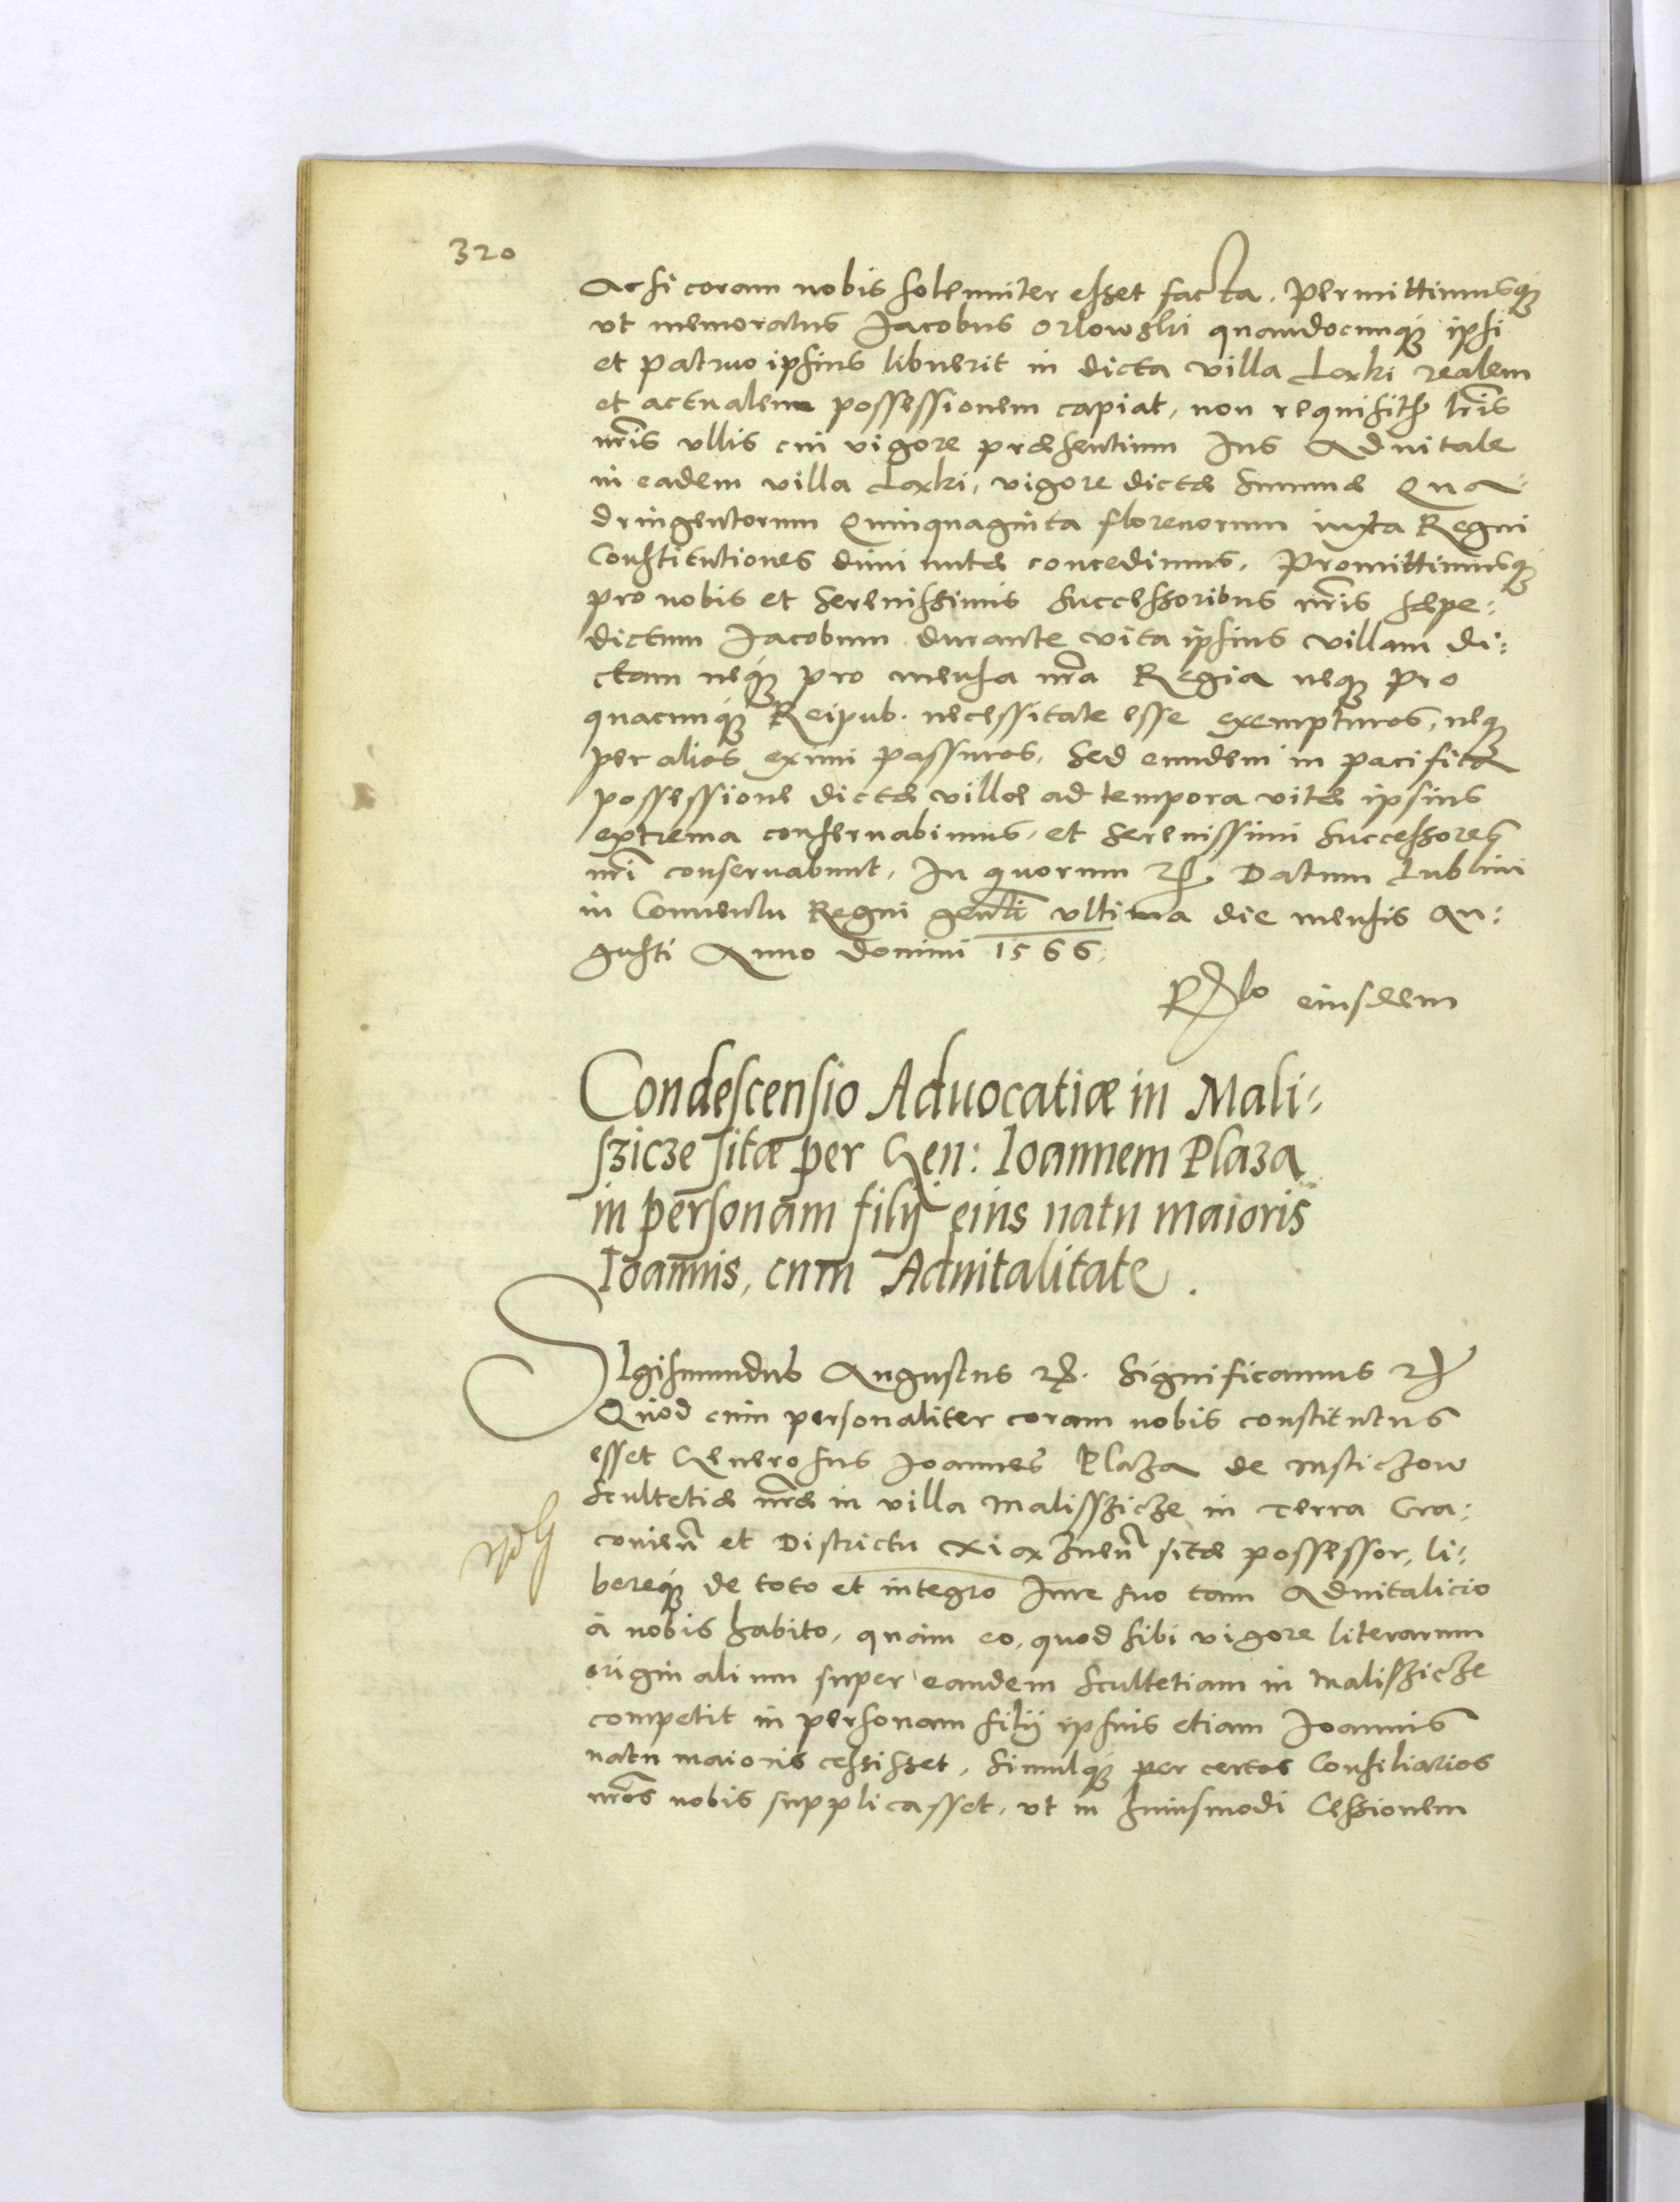 320
Ac si coram nobis solenniter esset facta. Permittimusq3
vt memoratus Jacobus Orlowski quandocunq3 ipsi
et patruo ipsius libuerit in dicta villa Loxki realem
et actualem possessionem capiat, non requisitis lris
nris vllis cui vigore præsentium Jus Aduitale
in eadem villa Loxki, vigore dictæ Summæ Qua-
dringentorum Quinquaginta florenorum iuxta Regni
Constitutiones diminutæ concedimus. Promittimusq3
pro nobis et Serenissimis Successoribus nris sæpe:
dictum Jacobum durante vita ipsius villam di:
ctam neq3 pro mensa nra Regia neq3 pro
quacunq3 Reipub. necessitate esse exempturos, neq3
per alios eximi passuros. Sed eundem in pacifica
possessione dictæ villæ ad tempora vitæ ipsius
extrema conseruabimus, et Serenissimi Successores
nri conseruabunt. In quorum rei Datum Lublini
in Conuentu Regni genli vltima die mensis Au:
gusti Anno Domini 1566.
Rlo eiusdem
Condescensio Aduocatiæ in Mali-
szicze sitæ per Gen: Ioannem Plaza
in personam filij eius natu maioris
Ioannis, cum Aduitalitate.
Sigismundus Augustus etc. Significamus etc
Quod cum personaliter coram nobis constitutus
esset Generosus Joannes Plaza de Mstichow
Scultetiæ nræ in villa Maliszicze in Terra Cra:
couien et Districtu Xiaxnen sitæ possessor, li:
bereq3 de toto et integro Jure suo tam Aduitalicio
à nobis habito, quàm eo, quod sibi vigore literarum
originalium super eandem Scultetiam in Maliszicze
competit in personam filij ipsius etiam Joannis
natu maioris cessisset, Simulq3 per certos Consiliarios
nros nobis supplicasset, vt in huiusmodi Cessionem